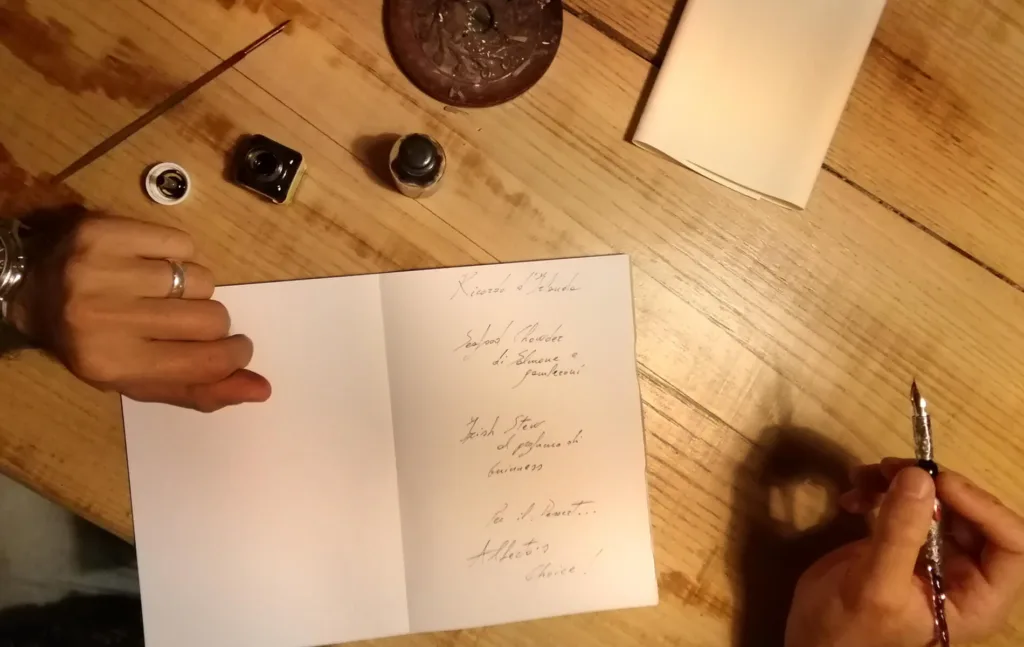 Ricordi d'Irlanda
Seafood Chowder
di Salmone e
gamberoni
Irish Stew
al profumo di
Guinness
Per il Dessert...
Alberto's
Choice!